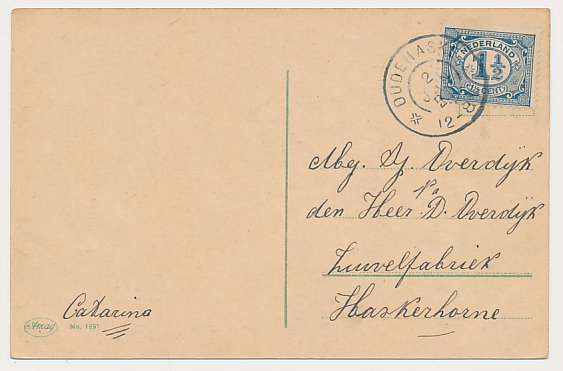 OUDEHASKE
12
NEDERLAND
1½
(1½ CENT)
Mej. Y. Overdijk
p/a
den Heer D. Overdijk
Zuivelfabriek
Haskerhorne
Catarina
Amag
No. 1691